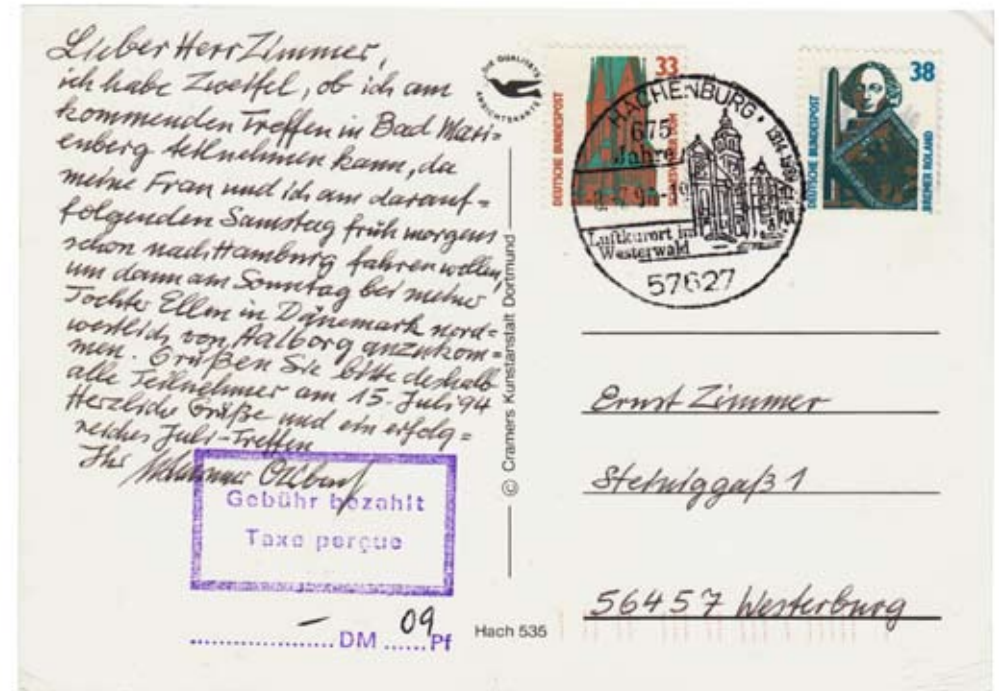 Lieber Herr Zimmer,
ich habe Zweifel, ob ich am
kommenden Treffen in Bad Mari=
enberg teilnehmen kann, da
meine Frau und ich am darauf=
folgenden Samstag früh morgens
schon nach Hamburg fahren wollen,
um dann am Sonntag bei meiner
Tochter Ellen in Dänemark nord=
westlich von Aalborg anzukom=
men. Grüßen Sie bitte deshalb
alle Teilnehmer am 15. Juli 94
Herzliche Grüße und ein erfolg=
reiches Juli-Treffen
Ihr
Gebühr bezahlt
Taxe perçue
– DM 09 Pf
DIE QUALITÄTS
ANSICHTSKARTE
© Cramers Kunstanstalt Dortmund
Hach 535
33
DEUTSCHE BUNDESPOST
SCHLESWIGER DOM
HACHENBURG • 1314-1989
675
Jahre
Luftkurort im
Westerwald
57627
38
DEUTSCHE BUNDESPOST
BREMER ROLAND
Ernst Zimmer
Steiniggaß 1
56457 Westerburg